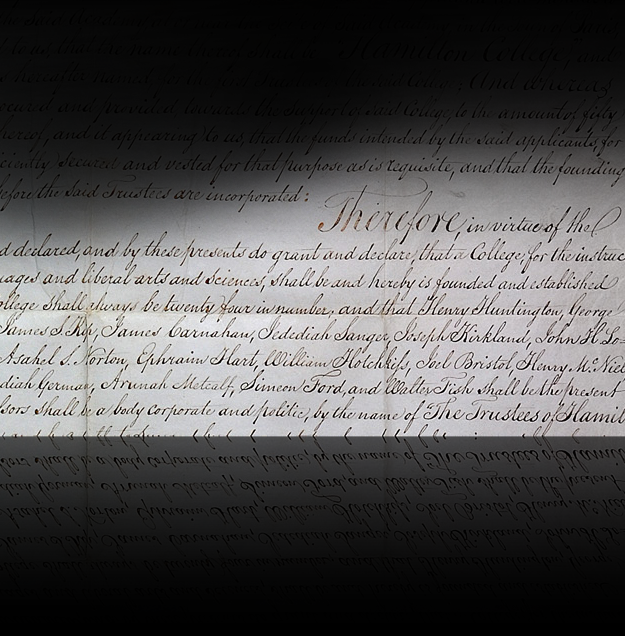 to us that the name thereof shall be Hamilton College, and
And whereas
secured and provided, towards the support of said College, to the amount of fifty
hereof, and it appearing to us, that the funds intended by the said applicants, for
ciently secured and vested for that purpose as is requisite, and that the founding
before the said Trustees are incorporated:
Therefore, in virtue of the
d declared, and by these presents do grant and declare, that a College, for the instruc
uages and liberal arts and sciences, shall be and hereby is founded and established
ollege shall always be twenty four in number, and that Henry Huntington, George
James S. Kip, James Carnahan, Jedediah Sanger, Joseph Kirkland, John H. Lo=
Asahel S. Norton, Ephraim Hart, William Hotchkiss, Joel Bristol, Henry McNiel
diah German, Arunah Metcalf, Simeon Ford, and Walter Fish shall be the present
ssors shall be a body corporate and politic, by the name of "The Trustees of Hamil